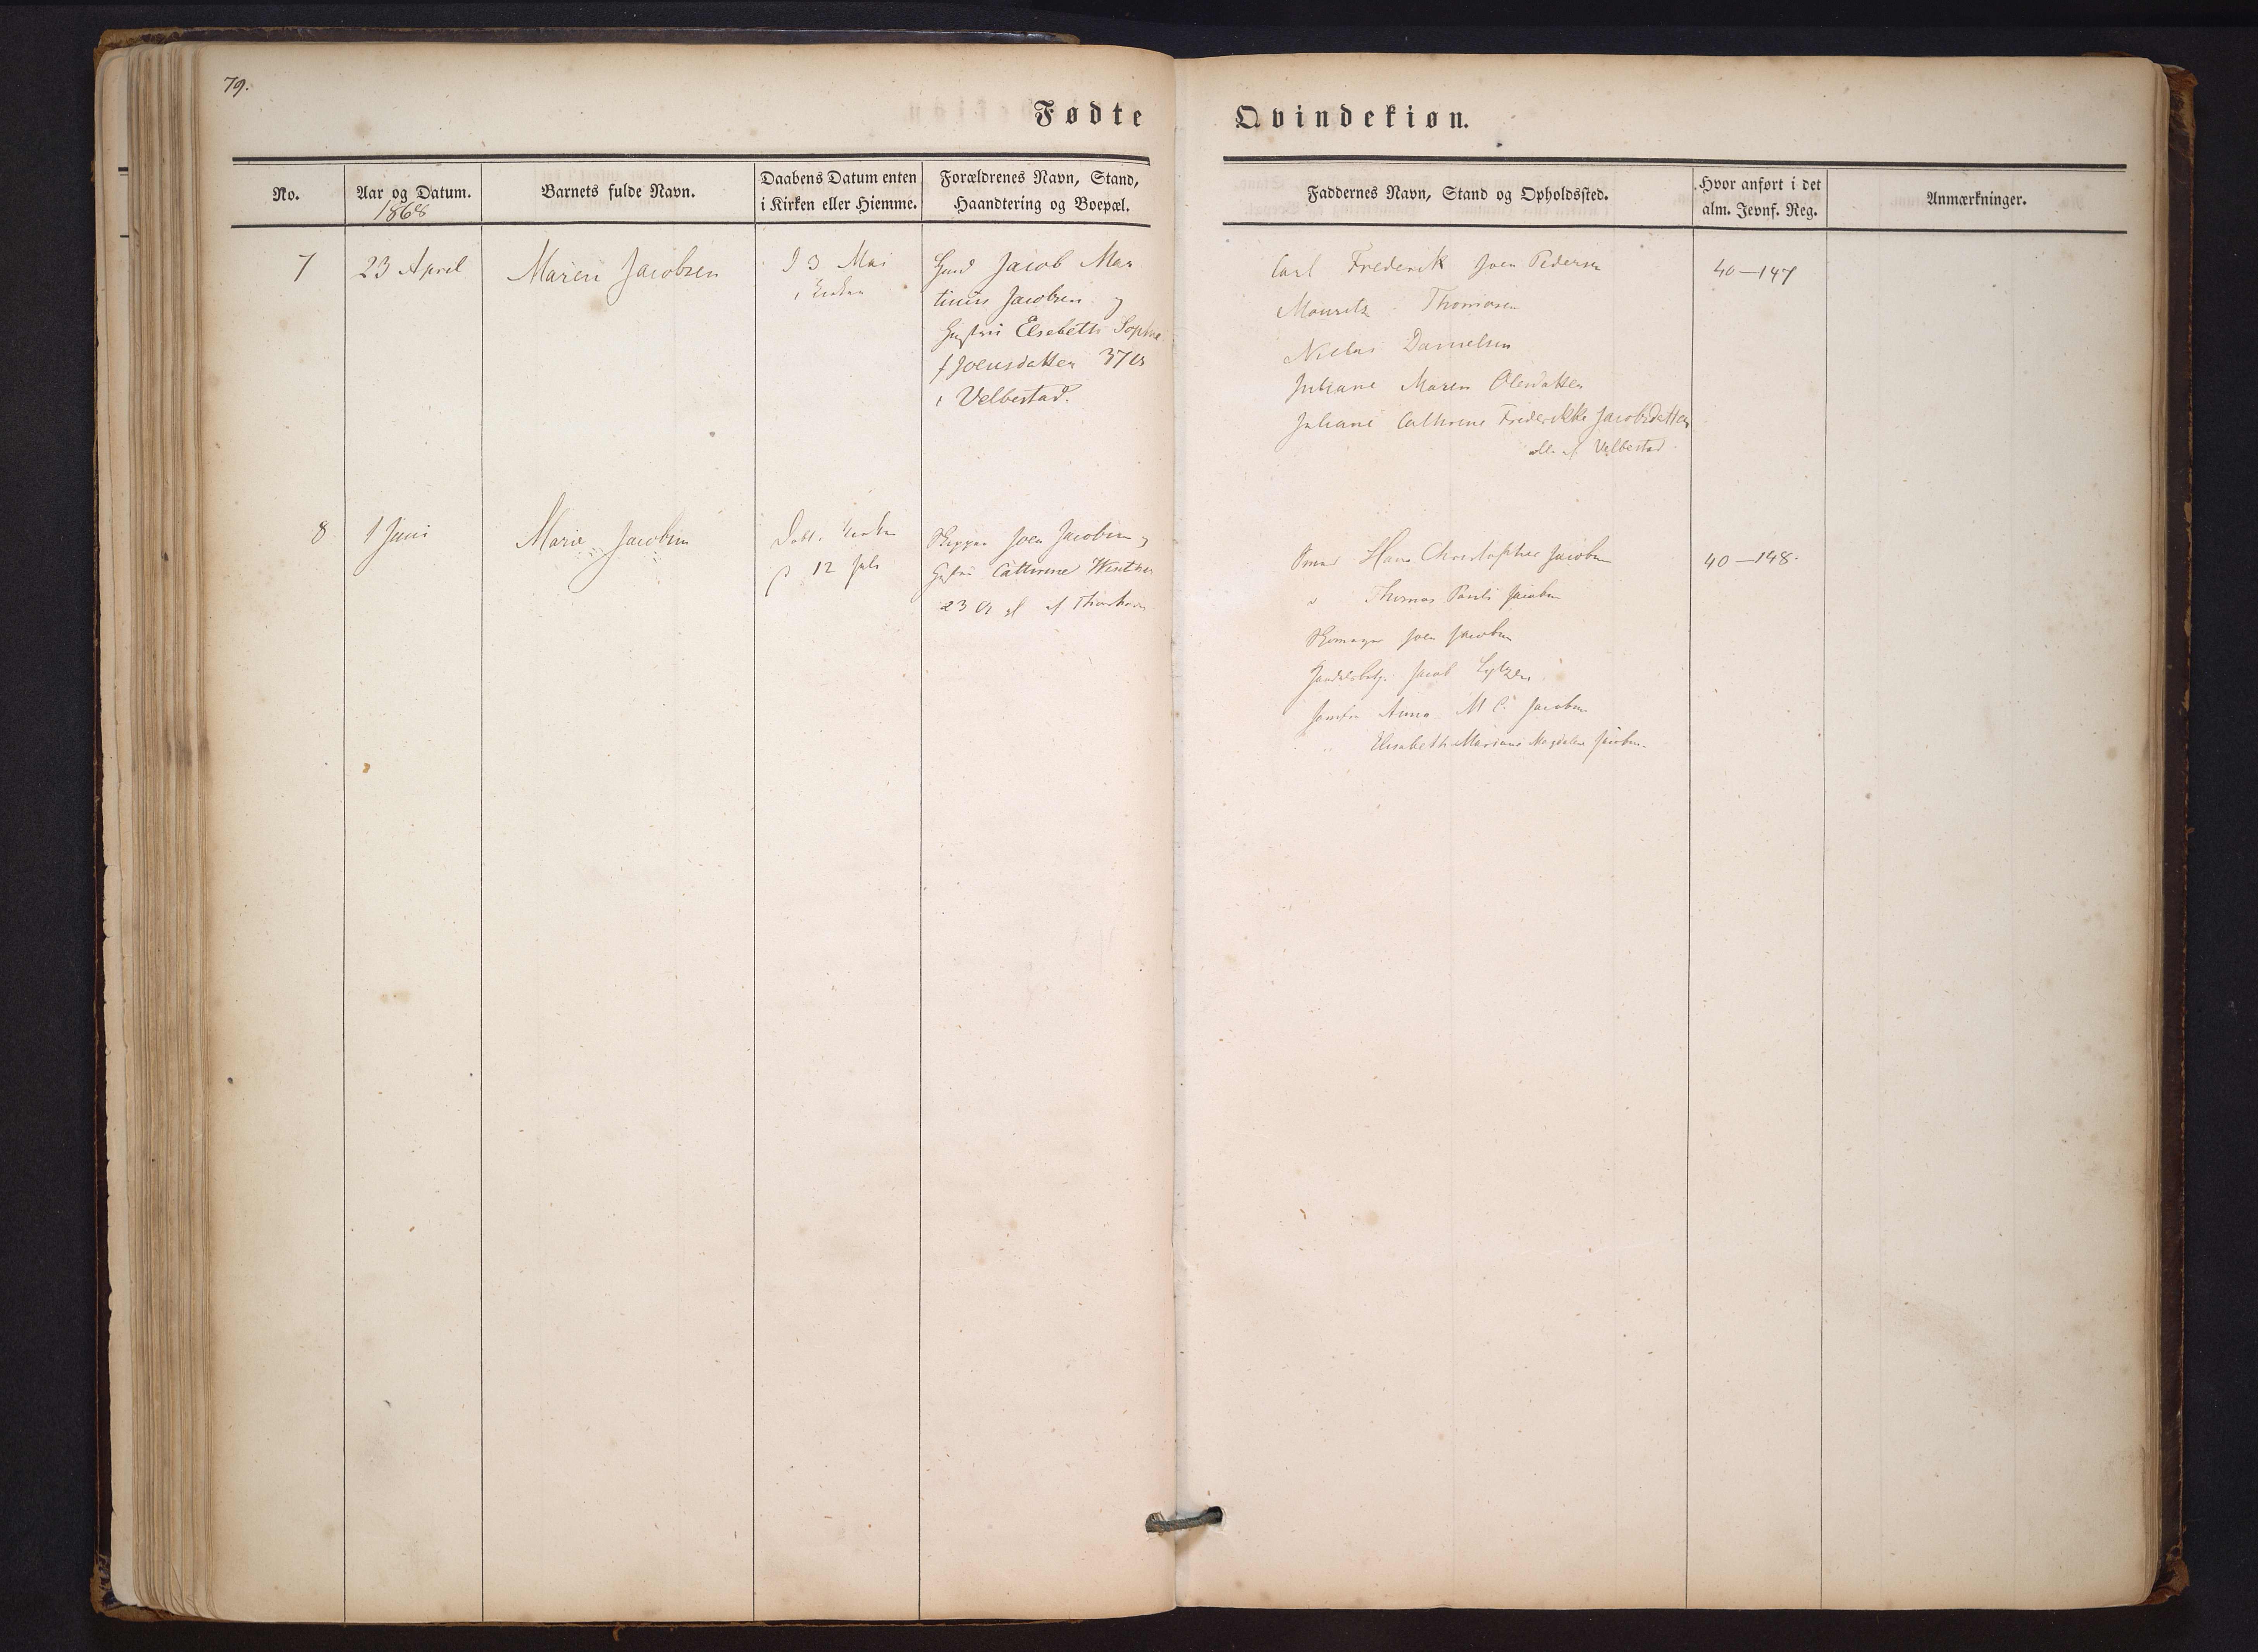 79.
Fødte Qvindekiøn.
No.
Aar og Datum.
1868
Barnets fulde Navn.
Daabens Datum enten
i Kirken eller Hiemme.
Forældrenes Navn, Stand,
Haandtering og Boepæl.
Faddernes Navn, Stand og Opholdssted.
Hvor anført i det
alm. Jevnf. Reg.
Anmærkninger.
7
23 April
Maren Jacobsen
3 Mai
i Kirken
Jacob Mar
tinus Jacobsen og
Hustru Elsebeth Sophie
f Joensdatter 37 Ar
i Velbestad.
Carl Frederik Joen Pedersen
Mouritz Thomasen
Niclas Danielsen
Juliane Maren Olesdatter
Juliane Cathrine Frederikke Jacobsdatter
alle af Velbestad
40-147
8
1 Juni
Marie Jacobsen
Kirken
12 Juli
Skipper Joen Jacobsen og
Hustru Cathrine Winther
23 Ar gl af Thorshavn
Hans Christopher Jacobsen
" Thomas Pauli Jacobsen
Skomager Joen Jacobsen
Jacob Lützen
Jomfru Anna M C. Jacobsen
" Elisabeth Mariane Magdalene Jacobsen.
40-148.